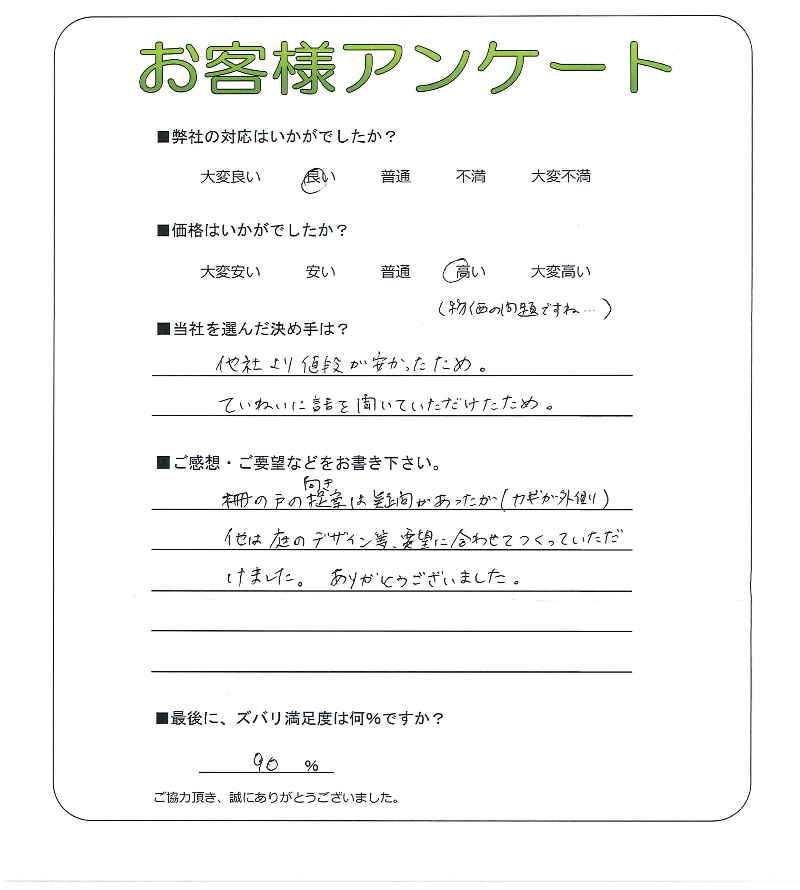 お客様アンケート
■弊社の対応はいかがでしたか？
大変良い 良い 普通 不満 大変不満
■価格はいかがでしたか？
大変安い 安い 普通 高い 大変高い
(物価の問題ですね…)
■当社を選んだ決め手は？
他社より値段が安かったため。
ていねいに話を聞いていただけたため。
■ご感想・ご要望などをお書き下さい。
向き
柵の戸の提案は疑問があったが(カギが外側)
他は庭のデザイン等、要望に合わせてつくっていただ
けました。ありがとうございました。
■最後に、ズバリ満足度は何％ですか？
90 %
ご協力頂き、誠にありがとうございました。